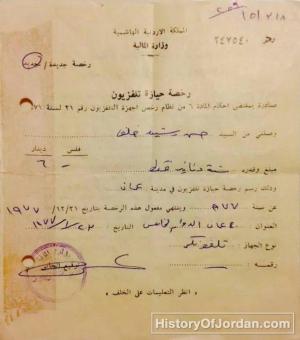 المملكة الاردنية الهاشمية
وزارة المالية
رخصة جديدة / تجديد
رخصة حيازة تلفزيون
صادرة بمقتضى احكام المادة ٦ من نظام رخص اجهزة التلفزيون رقم ٢١ لسنة ٧١
وصلني من السيد حسن رشيد
فلس دينار
٦
مبلغ وقدره ستة دنانير فقط
وذلك رسم رخصة حيازة تلفزيون في مدينة عمان
عن سنة ٩٧٧ وينتهي مفعول هذه الرخصة بتاريخ ١٢/٣١/ ١٩٧٧
العنوان عمان الدوار الخامس التاريخ :
نوع الجهاز :
رقمه :
( انظر التعليمات على الخلف )
HistoryOfJordan.com